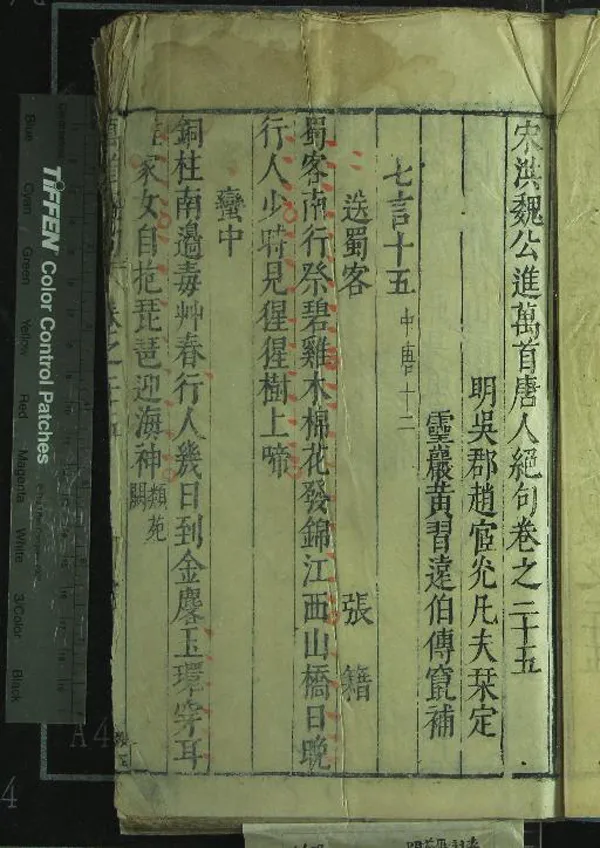 宋洪魏公進萬首唐人絕句卷之二十五
明吳郡趙宧光凡夫栞定
靈巖黃習遠伯傳竄補
七言十五 中唐十二
送蜀客 張籍
蜀客南行祭碧雞木棉花發錦江西山橋日晚
行人少時見猩猩樹上啼
蠻中
銅柱南邊毒艸春行人幾日到金麐玉環穿耳
家女自抱琵琶迎海神 類苑闕
卷之二十五
TIFFEN Color Control Patches
Blue
Cyan
Green
Yellow
Red
Magenta
White
3/Color
Black
A4
4